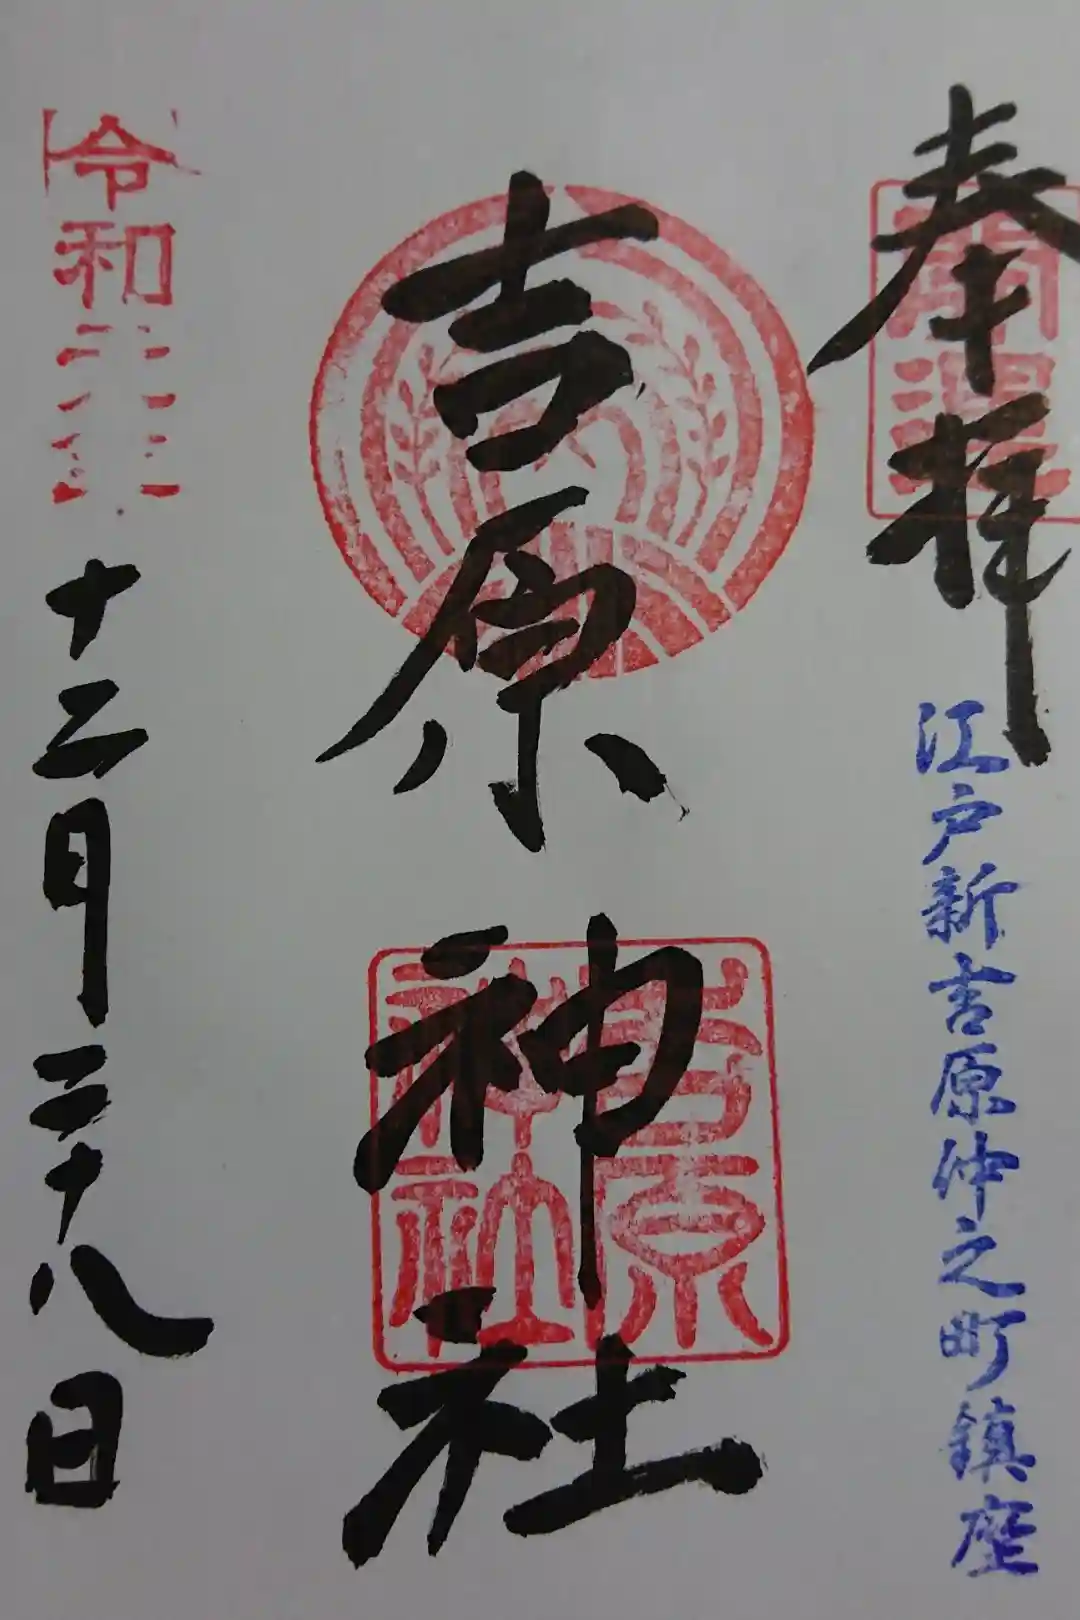 奉拝
江戸新吉原仲之町鎮座
吉原神社
吉原
神社
令和
十二月二十八日